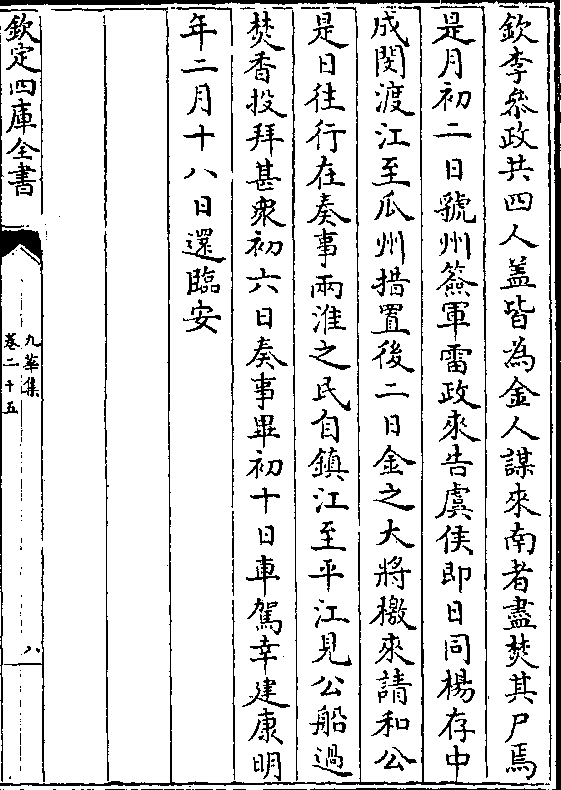 欽李叅政共四人盖皆為金人謀來南者盡焚其尸焉
是月初二日虢州簽軍雷政來告虞侯即日同楊存中
成閔渡江至瓜州措置後二日金之大將檄來請和公
是日往行在奏事兩淮之民自鎮江至平江見公船過
焚香投拜甚衆初六日奏事畢初十日車駕幸建康明
年二月十八日還臨安
欽定四庫全書
九華集
卷二十五
八